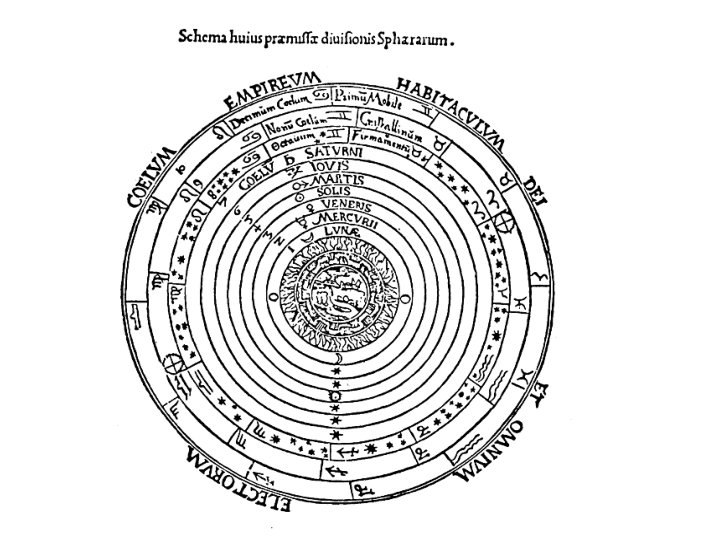 Schema huius præmissæ diuisionis Sphærarum.
COELVM EMPIREVM HABITACVLVM DEI
ET OMNIVM
ELECTORVM
Decimum Coelum ♋ Primũ Mobile ♊
Nonũ Coelũm ♊ Cristallinũm
Octauum ♊ Firmamentũ ♉
COELV ♄ SATVRNI
♃ IOVIS
♂ MARTIS
☉ SOLIS
♀ VENERIS
☿ MERCVRII
☽ LVNÆ
7
6
5
4
3
2
1